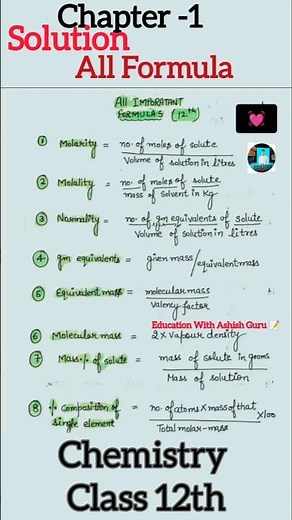 Chapter -1
Solution
All Formula
All IMPORATANT
FORMULAS (12th)
① Molarity = no. of moles of solute
Volume of solution in litres
② Molality = no. of moles of solute
mass of solvent in Kg
③ Normality = no. of gm equivalents of solute
Volume of solution in litres
④ gm equivalents = given mass / equivalent mass
⑤ Equivalent mass = molecular mass
Valency factor
Education With Ashish Guru 📝
⑥ Molecular mass = 2 x vapour density
⑦ Mass % of solute = mass of solute in grams
Mass of solution
⑧ % Composition of single element = no. of atoms x mass of that x 100
Total molar-mass
Chemistry
Class 12th